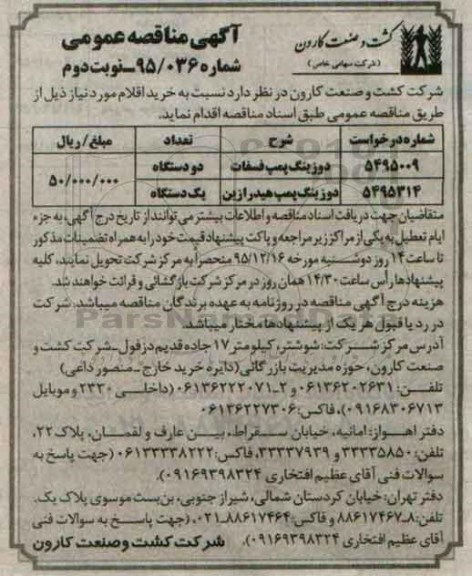 کشت و صنعت کارون
(شرکت سهامی خاص)
آگهی مناقصه عمومی
شماره ۹۵/۰۳۶ـ نوبت دوم
شرکت کشت و صنعت کارون در نظر دارد نسبت به خرید اقلام مورد نیاز ذیل از
طریق مناقصه عمومی طبق اسناد مناقصه اقدام نماید.
شماره درخواست شرح تعداد مبلغ/ریال
۵۴۹۵۰۰۹ دوزینگ پمپ فسفات دو دستگاه ۵۰/۰۰۰/۰۰۰
۵۴۹۵۳۱۴ دوزینگ پمپ هیدرازین یک دستگاه
متقاضیان جهت دریافت اسناد مناقصه و اطلاعات بیشتر می‌توانند از تاریخ درج آگهی، به جزء
ایام تعطیل به یکی از مراکز زیر مراجعه و پاکت پیشنهاد قیمت خود را به همراه تضمینات مذکور
تا ساعت ۱۴ روز دوشنبه مورخه ۹۵/۱۲/۱۶ منحصراً به مرکز شرکت تحویل نمایند، کلیه
پیشنهادها رأس ساعت ۱۴/۳۰ همان روز در مرکز شرکت بازگشائی و قرائت خواهند شد.
هزینه درج آگهی مناقصه در روزنامه به عهده برندگان مناقصه میباشد. شرکت
در رد یا قبول هر یک از پیشنهادها مختار میباشد.
آدرس مرکز شرکت: شوشتر، کیلومتر ۱۷ جاده قدیم دزفول ـ شرکت کشت و
صنعت کارون، حوزه مدیریت بازرگانی (دایره خرید خارج ـ منصور داعی)
تلفن: ۰۶۱۳۶۲۰۲۶۳۱ و ۲ـ۰۶۱۳۶۲۲۲۰۷۱ (داخلی ۲۳۲۰ و موبایل
۰۹۱۶۸۳۰۶۷۱۳)، فاکس: ۰۶۱۳۶۲۲۷۳۰۶
دفتر اهواز: امانیه، خیابان سقراط، بین عارف و لقمان، پلاک ۲۲،
تلفن: ۳۳۳۳۵۸۵۰ و ۳۳۳۳۷۹۳۹، فاکس: ۰۶۱۳۳۳۳۸۲۲۲ (جهت پاسخ به
سوالات فنی آقای عظیم افتخاری ۰۹۱۶۹۳۹۸۳۲۴).
دفتر تهران: خیابان کردستان شمالی، شیراز جنوبی، بن‌بست موسوی پلاک یک.
تلفن: ۸ـ۸۸۶۱۷۴۶۷ و فاکس: ۸۸۶۱۷۴۶۴ـ۰۲۱، (جهت پاسخ به سوالات فنی
آقای عظیم افتخاری ۰۹۱۶۹۳۹۸۳۲۴).
شرکت کشت و صنعت کارون